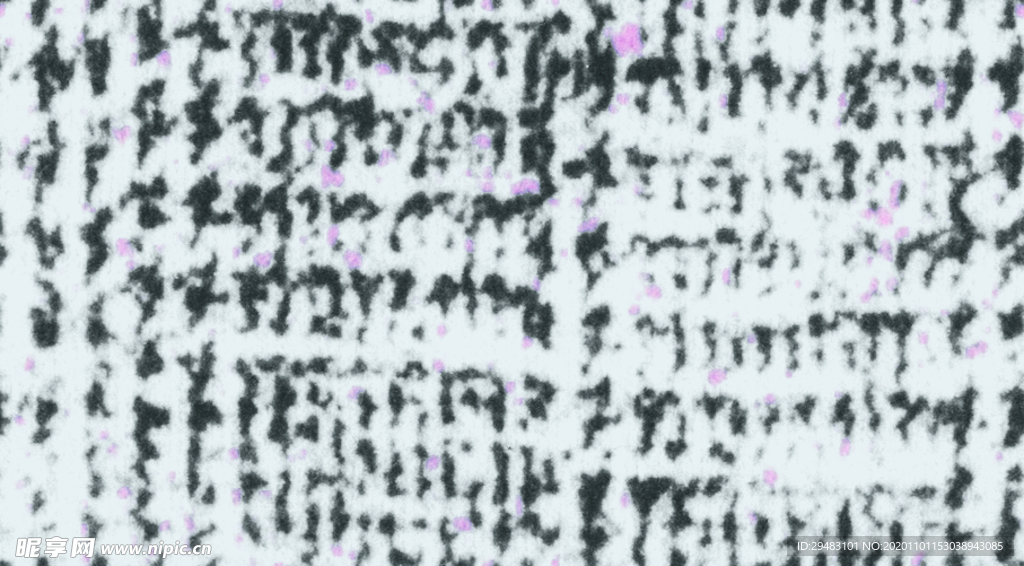 昵享网 www.nipic.cn
ID:29483101 NO:20201101153038943085